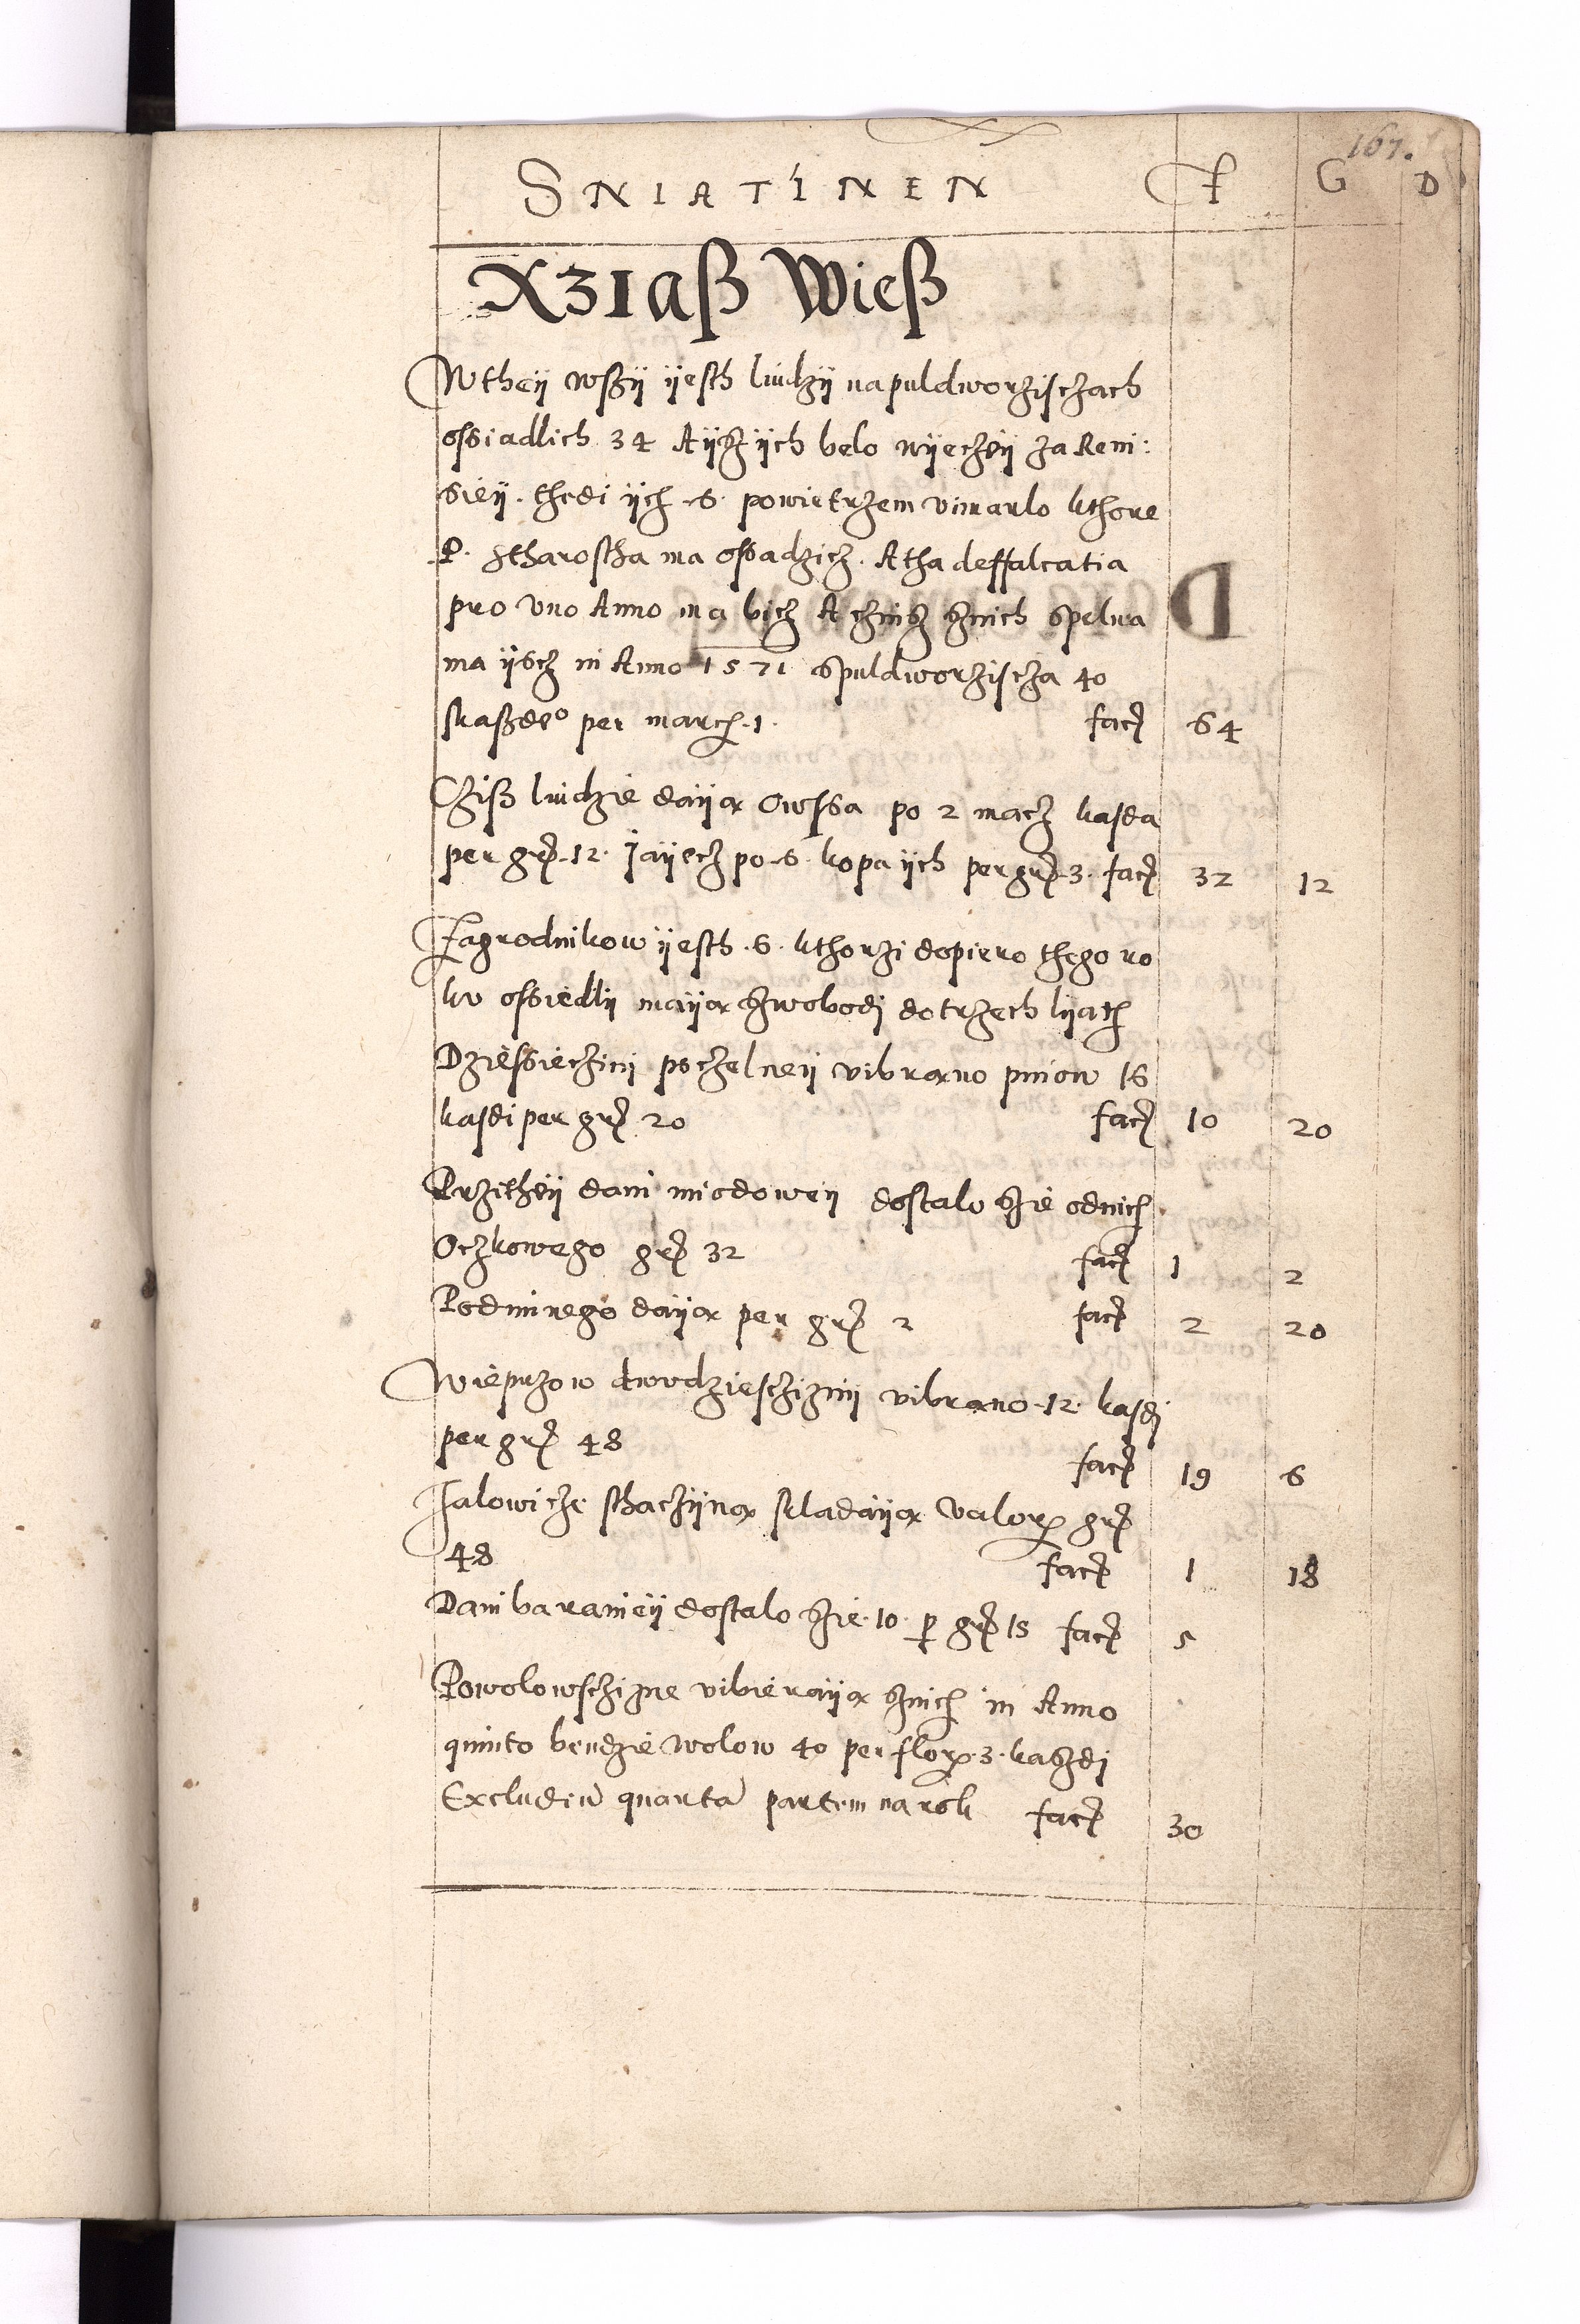 167.
SNIATINEN F G D
XZIAß Wieß
Wtheÿ wsÿ ÿesth liudzÿ na puldworzisczach
ossiadlich 34 Aÿszÿch belo wÿeczeÿ za Reui:
sieÿ. thedi ÿch .6. powietrzem vimarlo kthore
P. Stharostha ma ossadzicz. Atha deffalcatia
pro vno Anno ma bicz A czinsz sznich spelna
ma ÿscz in Anno 1571 spuldworzischa 40
skaßdeo per march. 1. facj 64
Cziß liudzie daÿą Owssa po 2 macz kasda
per grj. 12. Jaÿecz po .6. kopa ÿch per grj. 3. facj 32 12
Zagrodnikow ÿesth .6. kthorzi dopiero thego ro
ku ossiedlÿ maÿą szwobodj do trzech lÿath
Dziessieczinj psczelneÿ vibrano pniow 16
kasdi per grj 20 facj 10 20
Przitheÿ dani miodoweÿ dostalo szie odnich
Oczkowego grj 32 facj 1 2
Podimnego daÿą per grj 2 facj 2 20
Wieprzow dwudzieschiznÿ vibrano .12. kasdj
per grj 48 facj 19 6
Jalowicze sthaczÿną skladaÿą valorem grj
48 facj 1 18
Dani baranieÿ dostalo szie .10. per grj 15 facj 5
Powolowschizne vibieraÿą sznich in Anno
quinto bendzie wolow 40 per flor. 3. kaszdj
Excludendo quarta partem na rok facj 30